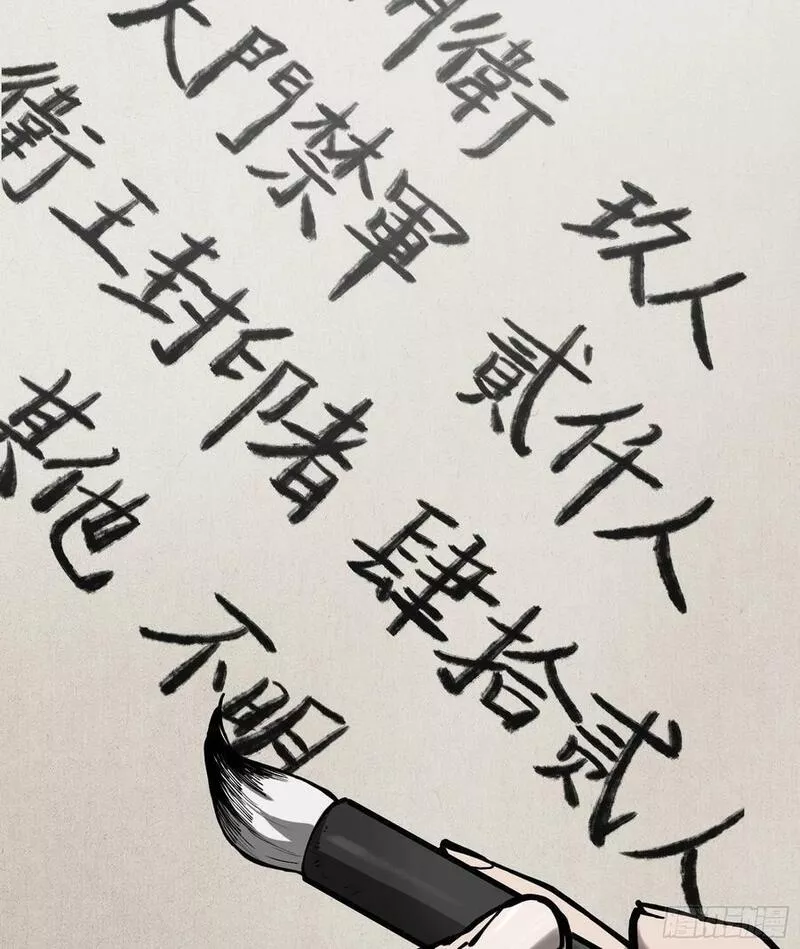 門衛 玖人
大門禁軍 貳仟人
衛王封印者 肆拾贰人
其他 不明